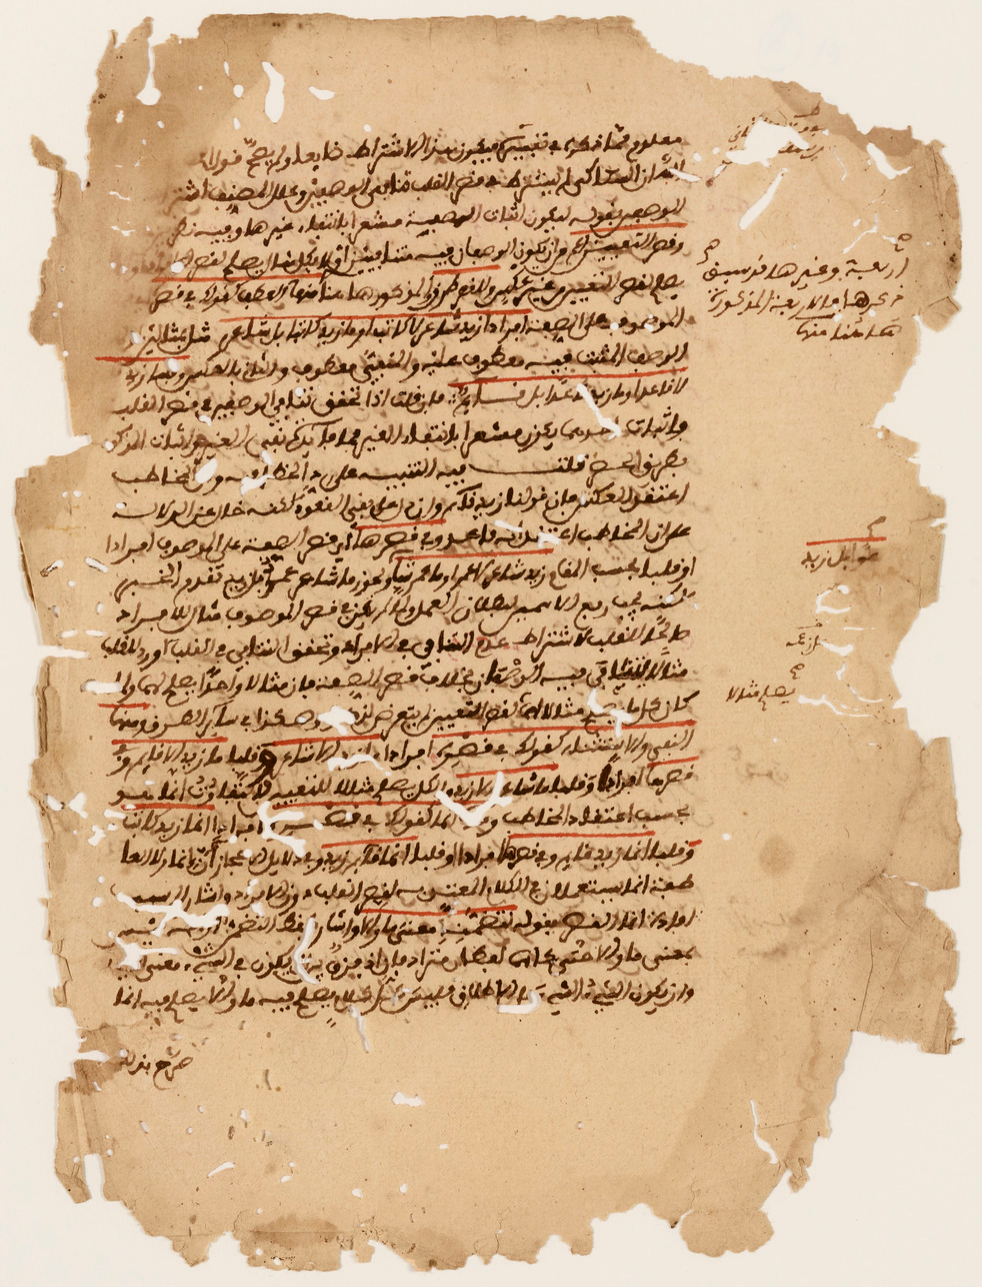 فيكون هذا الاشتراط ضايعا ولم يصح قول
ان السكاكي لم يشترط في قصر القلب تنافي الوصفين وعلل المصنف اشتر
الوصفين بقوله ليكون اثبات الصفة مشعرا بانتفاء غيرها وفيه نظر
وقصر التعيين اعم من ان يكون الوصفان فيه متنافيين او لا فكل مثال يصلح لقصر
يصلح لقصر التعيين من غير عكس وللقصر طرق والمذكور ههنا منها العطف كقولك في قصر
الموصوف على الصفة افرادا زيد شاعر لا كاتب او ما زيد كاتبا بل شاعر مثل بمثالين
الوصف المثبت فيه معطوف عليه والمنفي معطوف والثاني بالعكس وقلبا زيد
لا قاعد او ما زيد قاعدا بل قايم فان قلت اذا تحقق تنافي الوصفين في قصر القلب
واثبات احدهما يكون مشعرا بانتفاء الغير فما فايدة نفي الغير واثبات المذكو
بطريق الحصر قلت فيه التنبيه على رد الخطا فيه وان المخاطب
اعتقد العكس فان قولنا زيد قايم وان دل على نفي القعود لكنه خال عن الدلالة
على ان المخاطب اعتقد انه قاعد وفي قصرها اي قصر الصفة على الموصوف افرادا
او قلبا بحسب المقام زيد شاعر لا عمرو او ما عمرو ويجوز ما شاعر عمرو بل زيد بتقديم الخبر
لكنه يجب رفع الاسمين لبطلان العمل ولما لم يكن في قصر الموصوف مثال الافراد
صالحا للقلب لاشتراط عدم التنافي في الافراد وتحقق التنافي في القلب اورد للقلب
مثالا يتنافى فيه الوصفان بخلاف قصر الصفة فان مثالا واحدا يصلح لهما ولما
كان كل ما يصلح مثالا لهما لقصر التعيين لم يتعرض لذكره وهكذا في ساير الطرق ومنها
النفي والاستثناء كقولك في قصره افرادا ما زيد الا شاعر وقلبا ما زيد الا قايم وفي
قصرها افرادا وقلبا ما شاعر الا زيد والكل يصلح مثالا للتعيين والتفاوت انما هو
بحسب اعتقاد المخاطب ومنها انما كقولك في قصره افرادا انما زيد كاتب
وقلبا انما زيد قايم وفي قصرها افرادا وقلبا انما قايم زيد وفي دلايل الاعجاز ان انما ولا العا
طفة انما يستعملان في الكلام المعتد به لقصر القلب دون الافراد واشار الى سبب
افادة انما القصر بقوله لتضمنه معنى ما والا واشار بلفظ التضمن الى انه ليس
بمعنى ما والا حتى كانهما لفظان مترادفان اذ فرق بين ان يكون في الشيء معنى الشيء
وان يكون الشيء الشيء على الاطلاق فليس كل كلام يصلح فيه ما والا يصلح فيه انما
صرح بذلك
اربعة وغيرها قد سبق
ذكرها فالاربعة المذكورة
ههنا منها
شاعرا بل زيد
يصلح مثالا